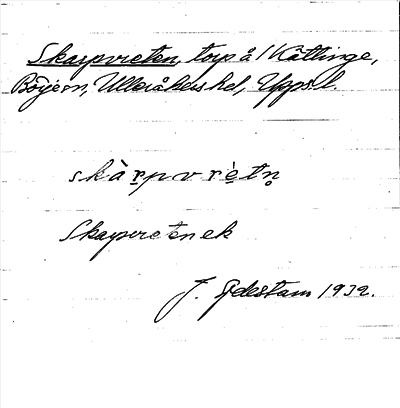 Skarpvreten, torp å Kättinge,
Börje sn, Ulleråkers hd, Uppsl.
skàr̯pvrèt̯n̥
Skarpvreten ek
J. Sjdestam 1932.